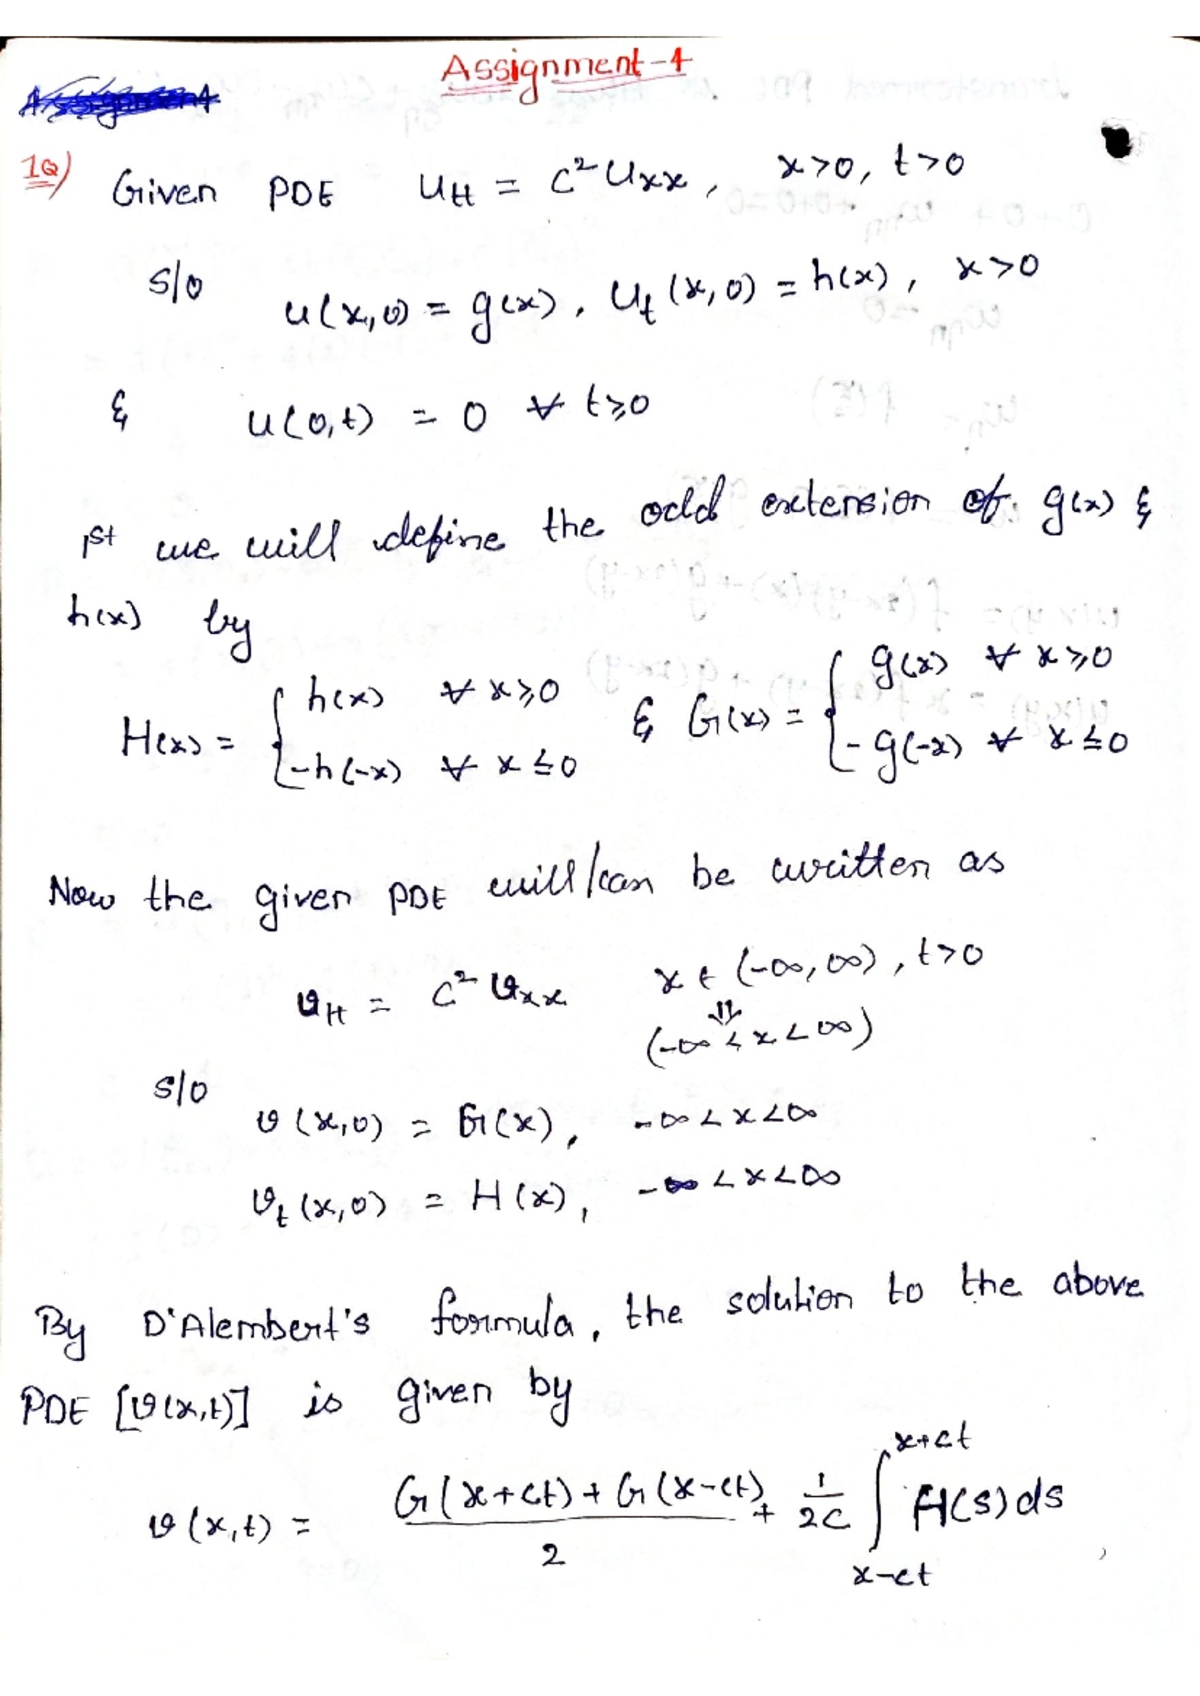 Assignment-4
1Q) Given PDE u_tt = c² u_xx, x>0, t>0
S/o
u(x,0) = g(x), u_t(x,0) = h(x), x>0
& u(0,t) = 0 ∀ t≥0
1st we will define the odd extension of g(x) &
h(x) by
H(x) = { h(x) ∀ x≥0 & G(x) = { g(x) ∀ x≥0
-h(-x) ∀ x≤0 -g(-x) ∀ x≤0
Now the given PDE will/can be written as
v_tt = c² v_xx x ∈ (-∞, ∞), t>0
⇓
(-∞ < x < ∞)
S/o
v(x,0) = G(x), -∞ < x < ∞
v_t(x,0) = H(x), -∞ < x < ∞
By D'Alembert's formula, the solution to the above
PDE [v(x,t)] is given by
v(x,t) = (G(x+ct) + G(x-ct))/2 + 1/2c ∫_{x-ct}^{x+ct} H(s) ds